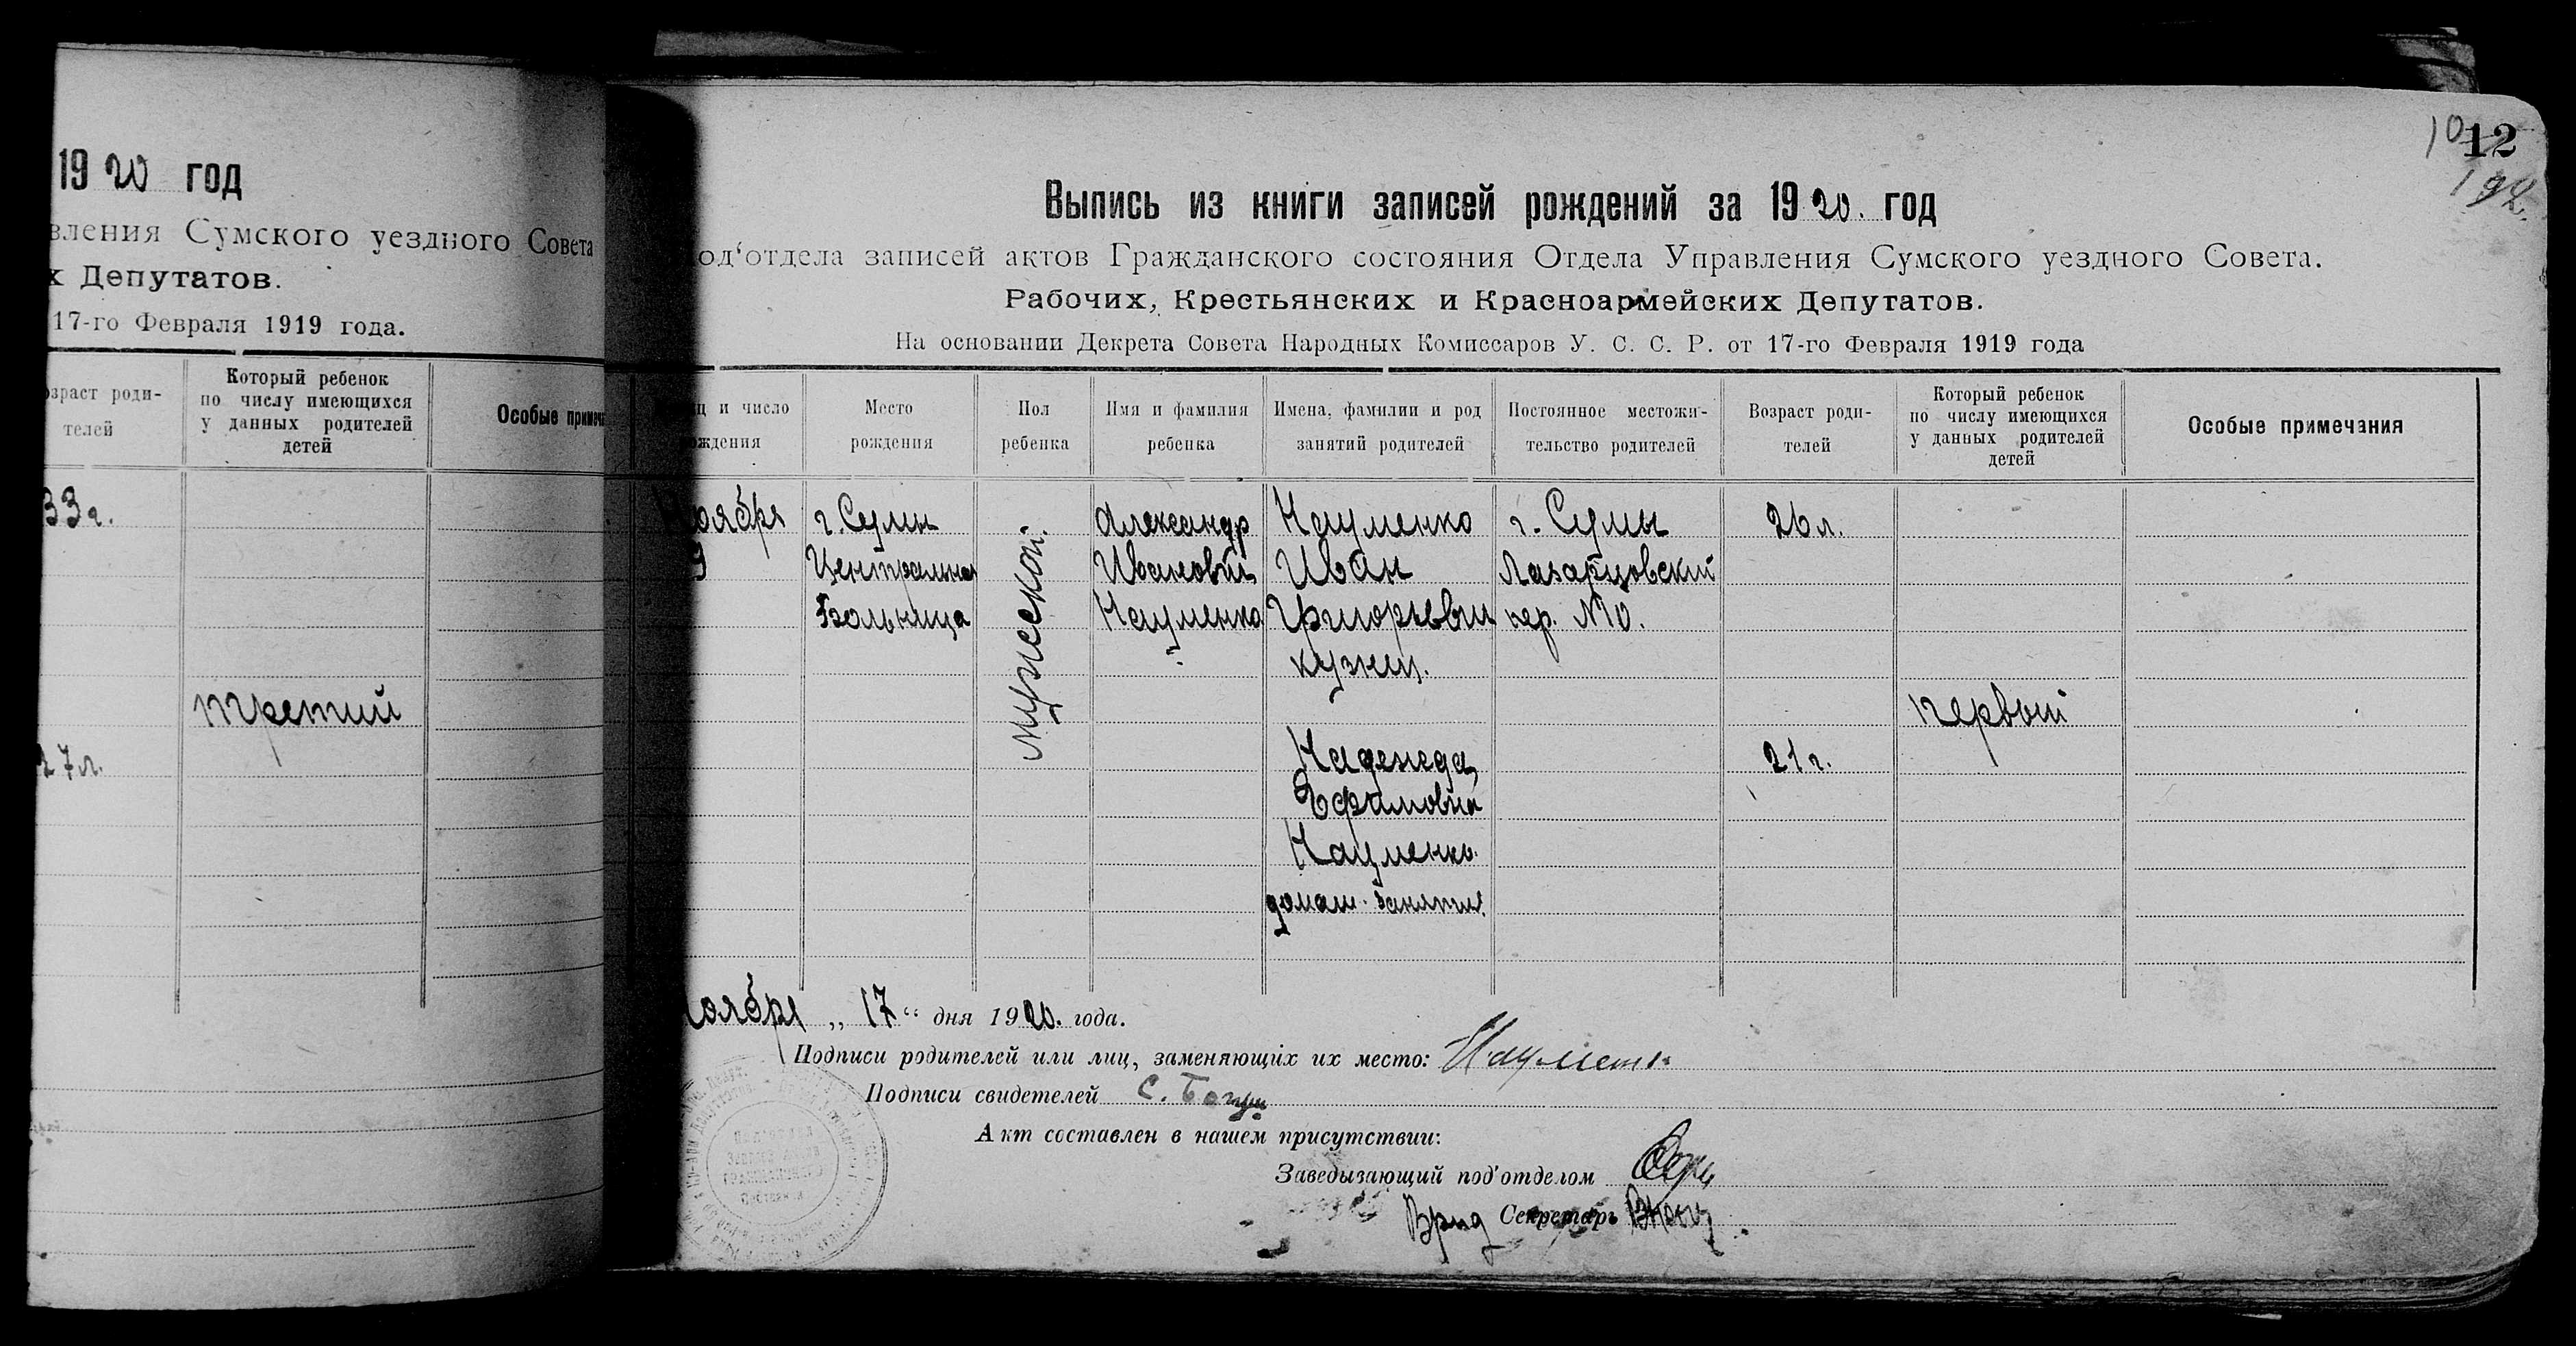 1920 год
вления Сумского уездного Совета
х Депутатов.
17-го Февраля 1919 года.
озраст роди-
телей
Который ребенок
по числу имеющихся
у данных родителей
детей
Особые примеча
33 г.
третий
27 л.
10
12
192.
Выпись из книги записей рождений за 1920. год
од'отдела записей актов Гражданского состояния Отдела Управления Сумского уездного Совета.
Рабочих, Крестьянских и Красноармейских Депутатов.
На основании Декрета Совета Народных Комиссаров У. С. С. Р. от 17-го Февраля 1919 года
ц и число
ождения
Место
рождения
Пол
ребенка
Имя и фамилия
ребенка
Имена, фамилии и род
занятий родителей
Постоянное местожи-
тельство родителей
Возраст роди-
телей
Который ребенок
по числу имеющихся
у данных родителей
детей
Особые примечания
Ноября
9
г. Сумы
Центральная
Больница
мужеской.
Александр
Иванович
Науменко
Науменко
Иван
Григорьевич
кузнец.
Надежда
Ефимовна
Науменко.
домаш. занятия.
г. Сумы
пер. №
26 л.
21 г.
первый
ноября „ 17 “ дня 1920. года.
Подписи родителей или лиц, заменяющих их место: Науменко
Подписи свидетелей С.
Акт составлен в нашем присутствии:
Заведызающий под'отделом
Врид Секретарь